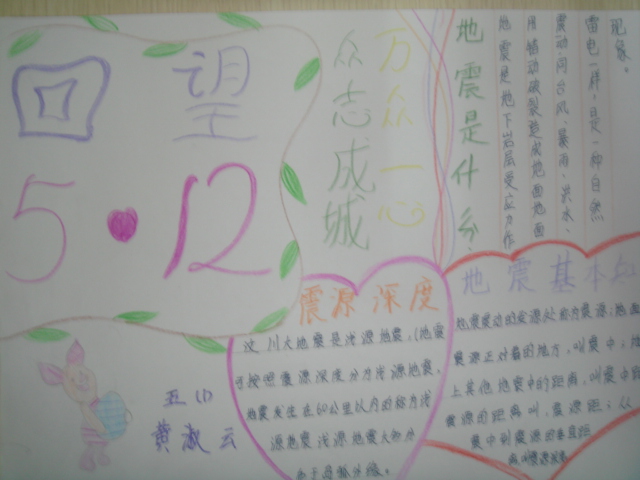 回望
5·12
众志成城
万众一心
地震是什么
地震是地下岩层受应力作
用错动破裂造成地面地面
震动。同台风、暴雨、洪水、
雷电一样，是一种自然
现象。
震源深度
这川大地震是浅源地震。(地震
可按照震源深度分为浅源地震、
地震发生在60公里以内的称为浅
源地震 浅源地震大部分
地震基本知
地震震动的发源处称为震源；地面
震源正对着的地方，叫震中；地
上其他地震中的距离，叫震中距
震源的距离叫，震源距；从
震中到震源的垂直距
五(1)
黄淑云